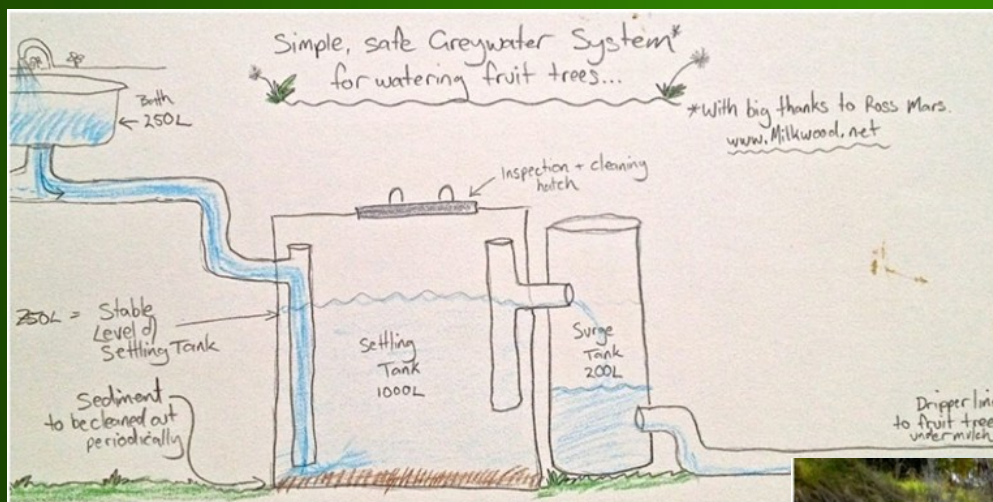 Simple, safe Greywater System*
for watering fruit trees...
*With big thanks to Ross Mars.
www.Milkwood.net
Bath
250L
Inspection + cleaning
hatch
250L = Stable
Level of
Settling Tank
Settling
Tank
1000L
Surge
Tank
200L
Sediment
to be cleaned out
periodically
Dripper line
to fruit trees
under mulch